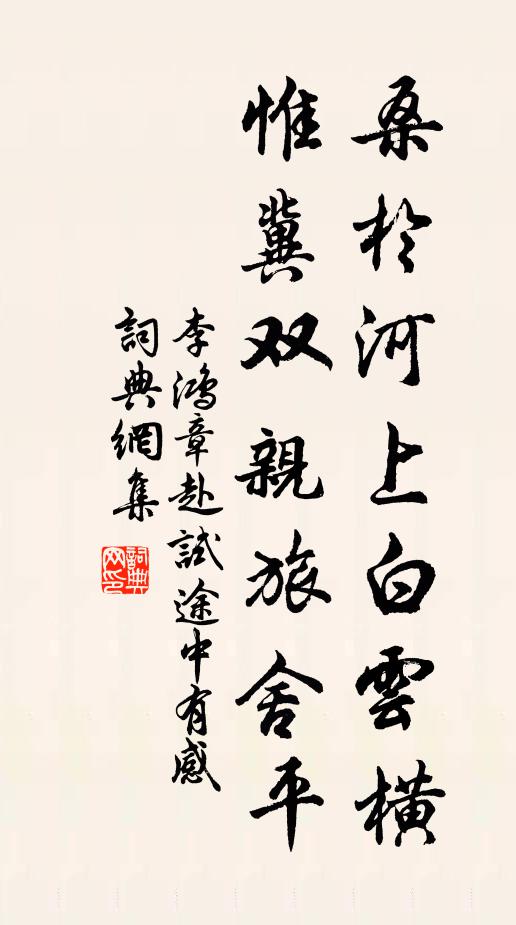 桑於河上白雲橫
惟冀双親旅舍平
李鴻章赴試途中有感
詞典網集
詞典
网印